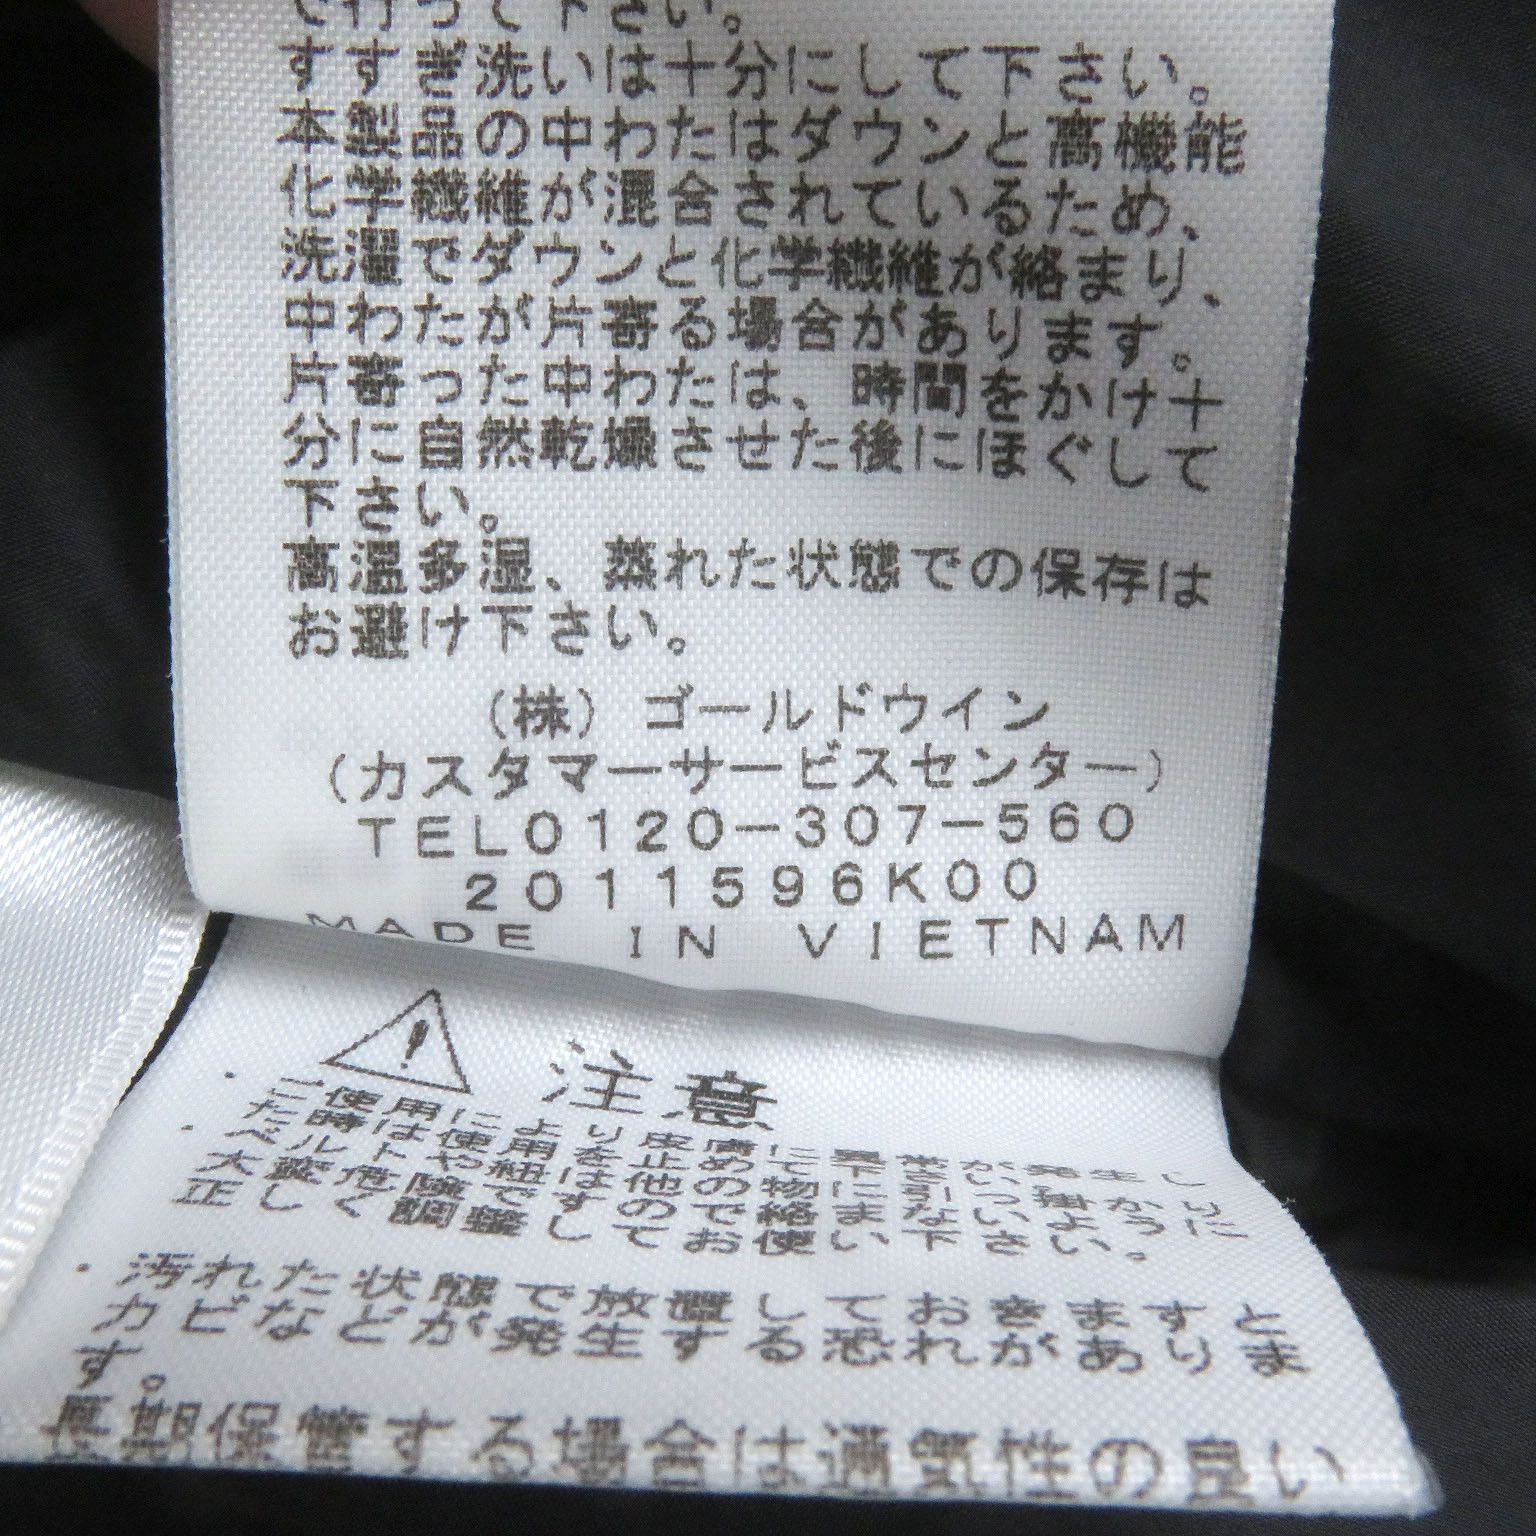 で行って下さい。
すすぎ洗いは十分にして下さい。
本製品の中わたはダウンと高機能
化学繊維が混合されているため、
洗濯でダウンと化学繊維が絡まり、
中わたが片寄る場合があります。
片寄った中わたは、時間をかけ十
分に自然乾燥させた後にほぐして
下さい。
高温多湿、蒸れた状態での保存は
お避け下さい。
(株) ゴールドウイン
(カスタマーサービスセンター)
TEL0120-307-560
2011596K00
MADE IN VIETNAM
注意
・ご使用により皮膚に異常が発生し
た時は使用を止めて下さい。
・ベルトや紐は他の物に引っ掛かり
大変危険ですので絡まないように
正しく調整してお使い下さい。
・汚れた状態で放置しておきますと
カビなどが発生する恐れがありま
す。
長期保管する場合は通気性の良い